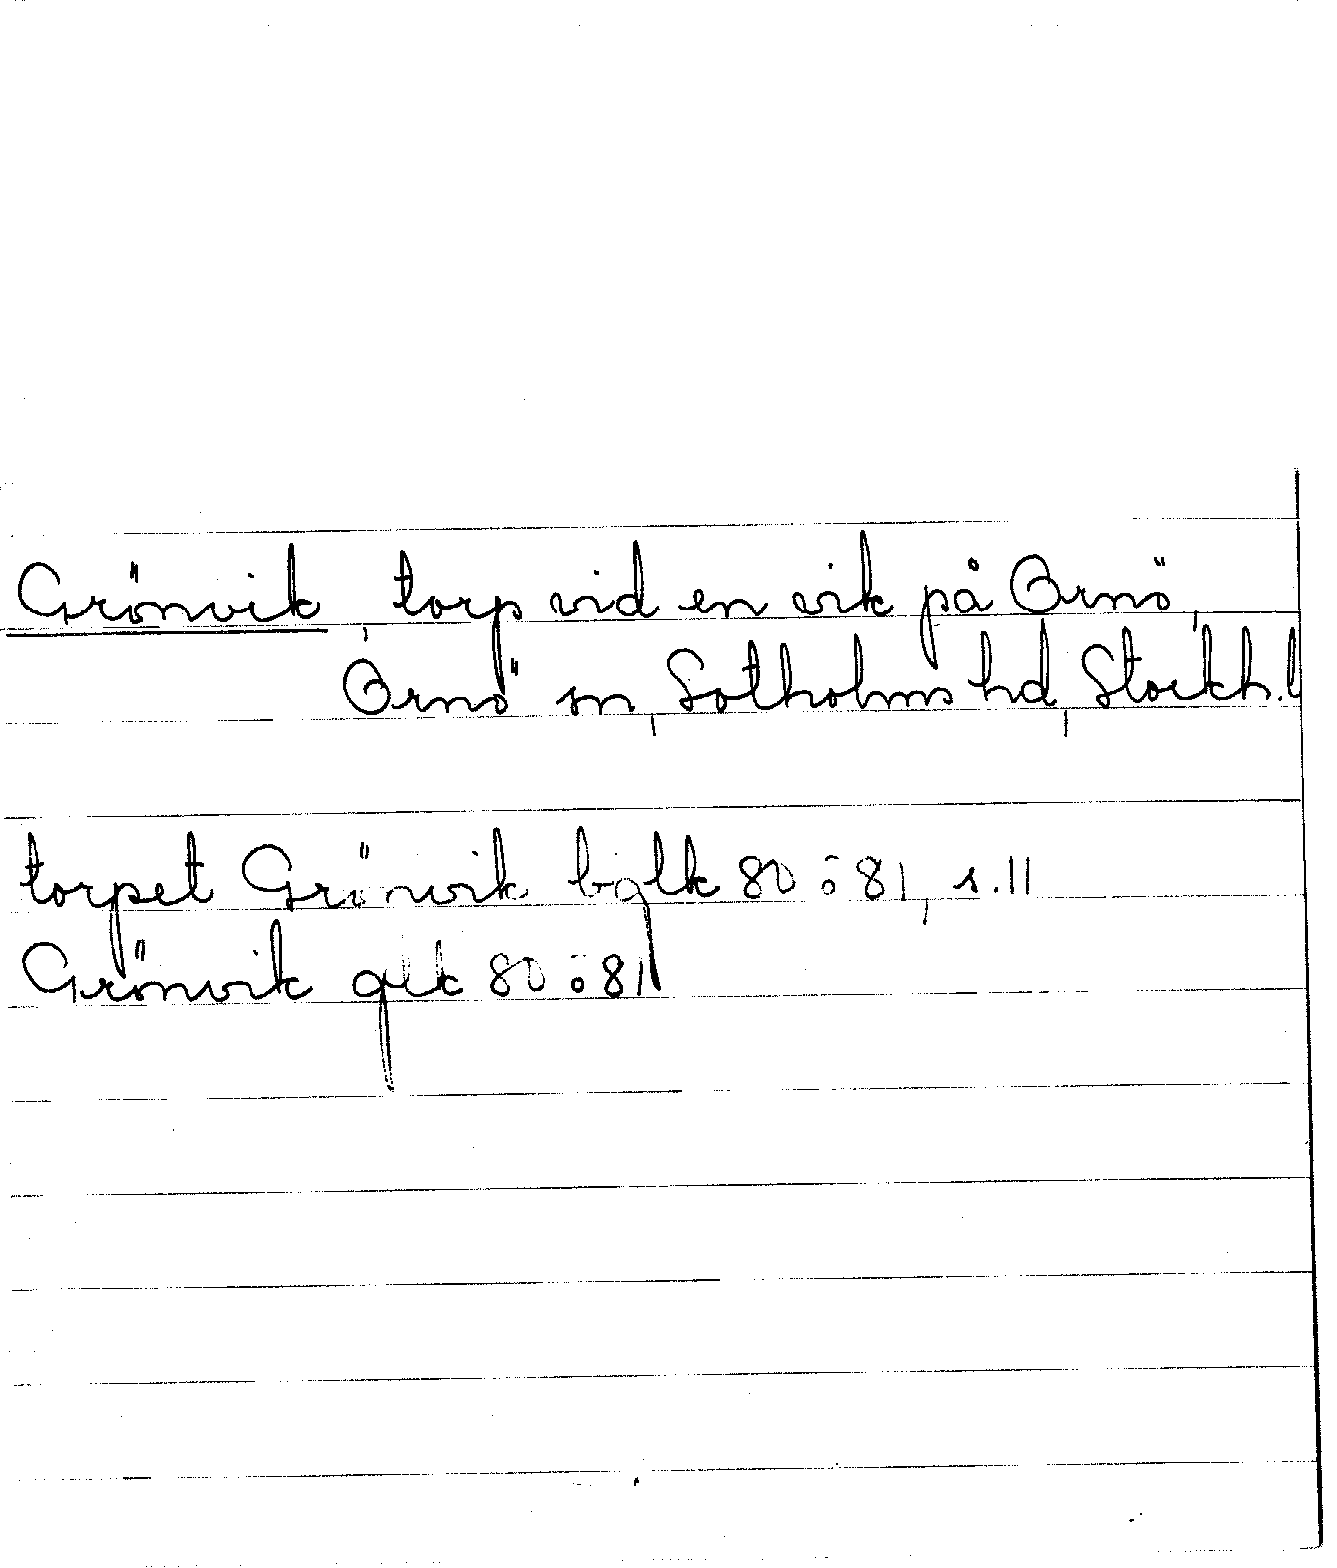 Grönvik, torp vid en vik på Ornö,
Ornö sn, Sotholms hd, Stockh. l
torpet Grönvik bglk 80 ö 81, s. 11
Grönvik glk 80 ö 81